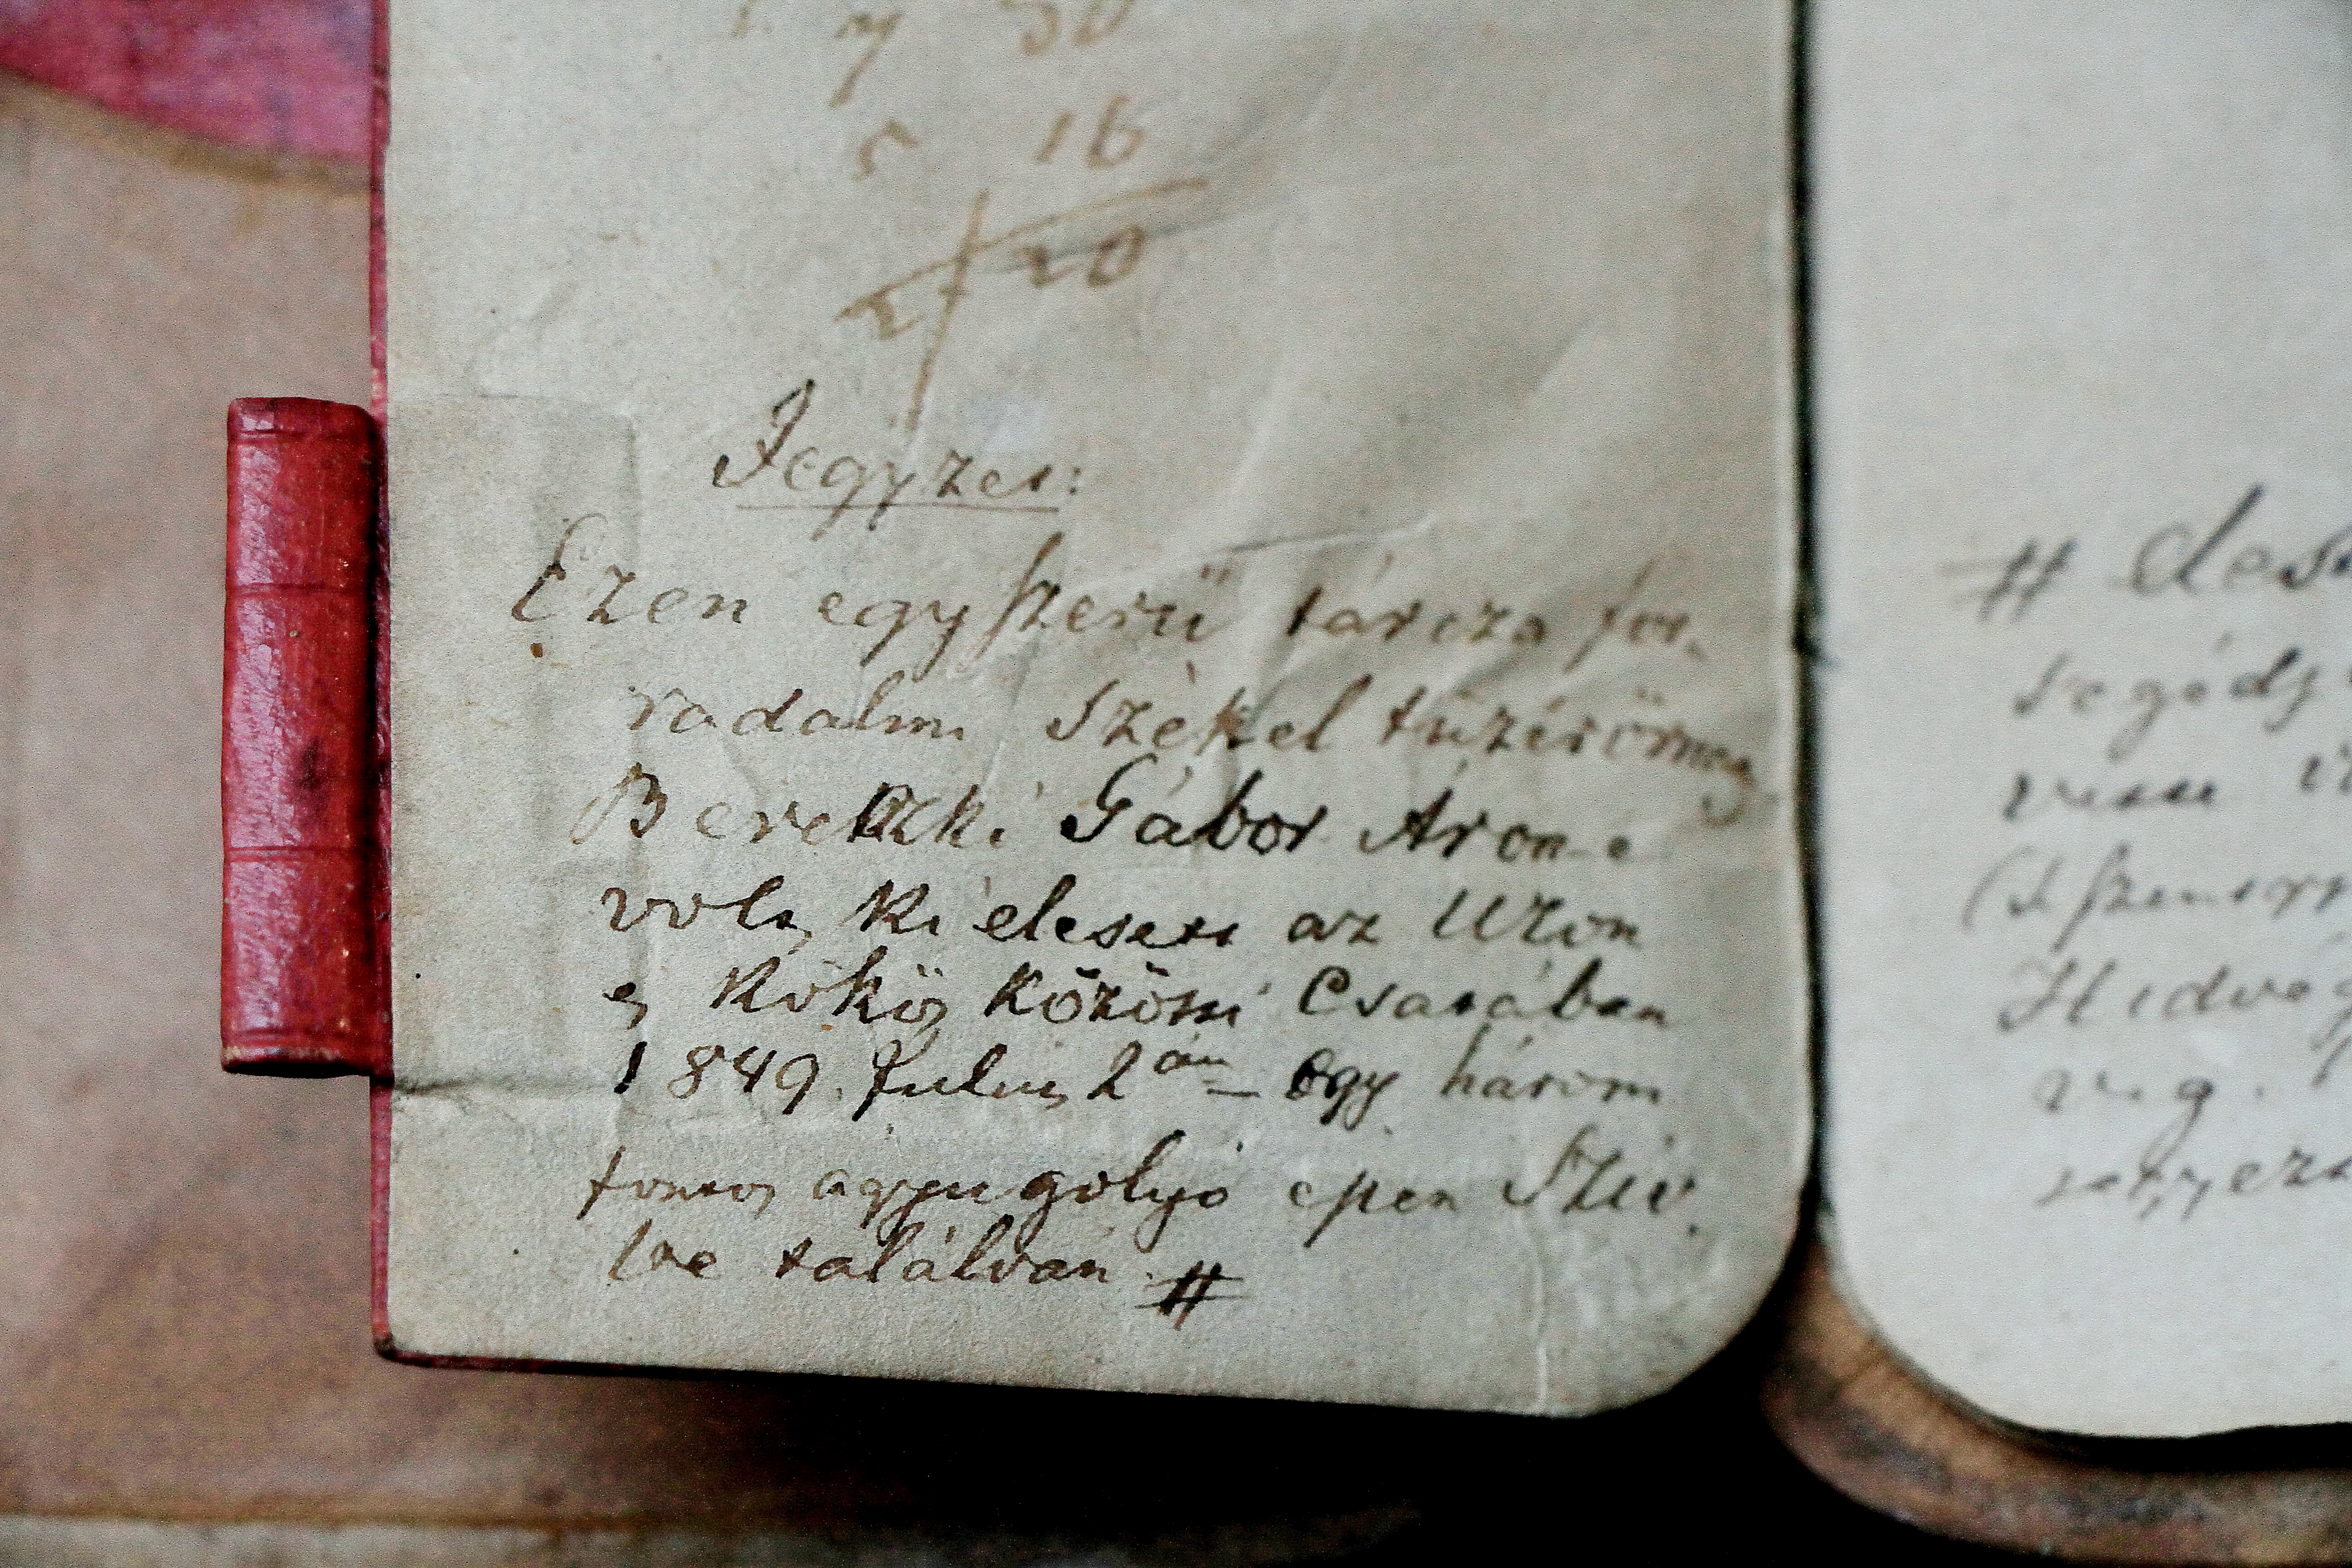 30
5 16
20
Jegyzet:
Ezen egyszerü tárcza for-
radalmi Székel tüzérörnagy
Bereczki Gábor Áron-e
volt, ki elesett az Uzon
és Kökös közötti Csatában
1849. Julius 2án – egy három
fontos agyugolyó epen Sziv-
be találván #
# 
segéds
Hidvég
v. g.